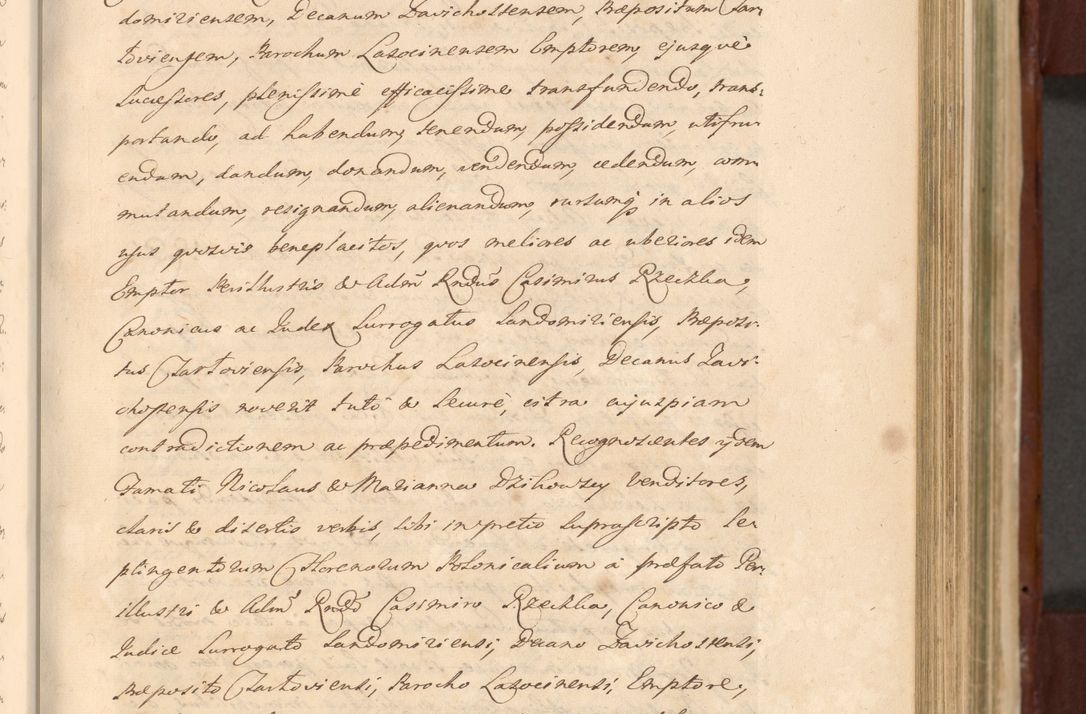 domiriensem, Decanum Zavichostensem, Præpositum Czar-
toviensem, Parochum Lasocinensem Emptorem, ejusquè
Successores, plenissimè efficacissime transfundendo, trans-
portando, ad habendum, tenendum, possidendum, utifru-
endum, dandum, donandum, vendendum, cedendum, com-
mutandum, resignandum, alienandum, rursumq in alios
usus quosvis beneplacitos, quos meliores ac uberiores idem
Emptor Perillustris & Adm Rndus Casimirus Rzechla,
Canonicus ac Iudex Surrogatus Sandomiriensis, Præposi-
tus Czartoviensis, Parochus Lasocinensis, Decanus Zavi-
chostensis noverit tutò & securè, citra cujuspiam
contradictionem ac præpedimentum. Recognoscentes ijdem
Famati Nicolaus & Marianna Dzikowscy Venditores,
claris & disertis verbis, sibi in pretio suprascripto Se-
ptingentorum Florenorum Polonicalium à præfato Per-
illustri & Adm Rndo Casimiro Rzechla, Canonico &
Iudice Surrogato Sandomiriensi, Decano Zavichostensi,
Præposito Czartoviensi, Parocho Lasocinensi, Emptore,